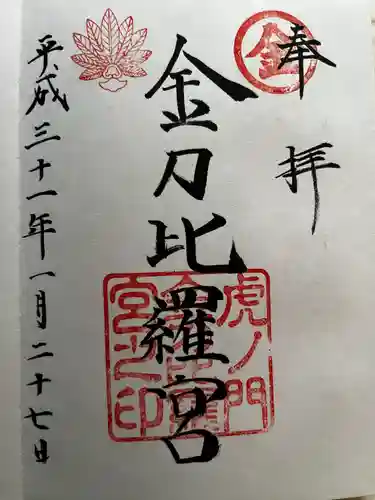 奉拝
金
金刀比羅宮
虎ノ門
金刀比羅
宮之印
平成三十一年一月二十七日